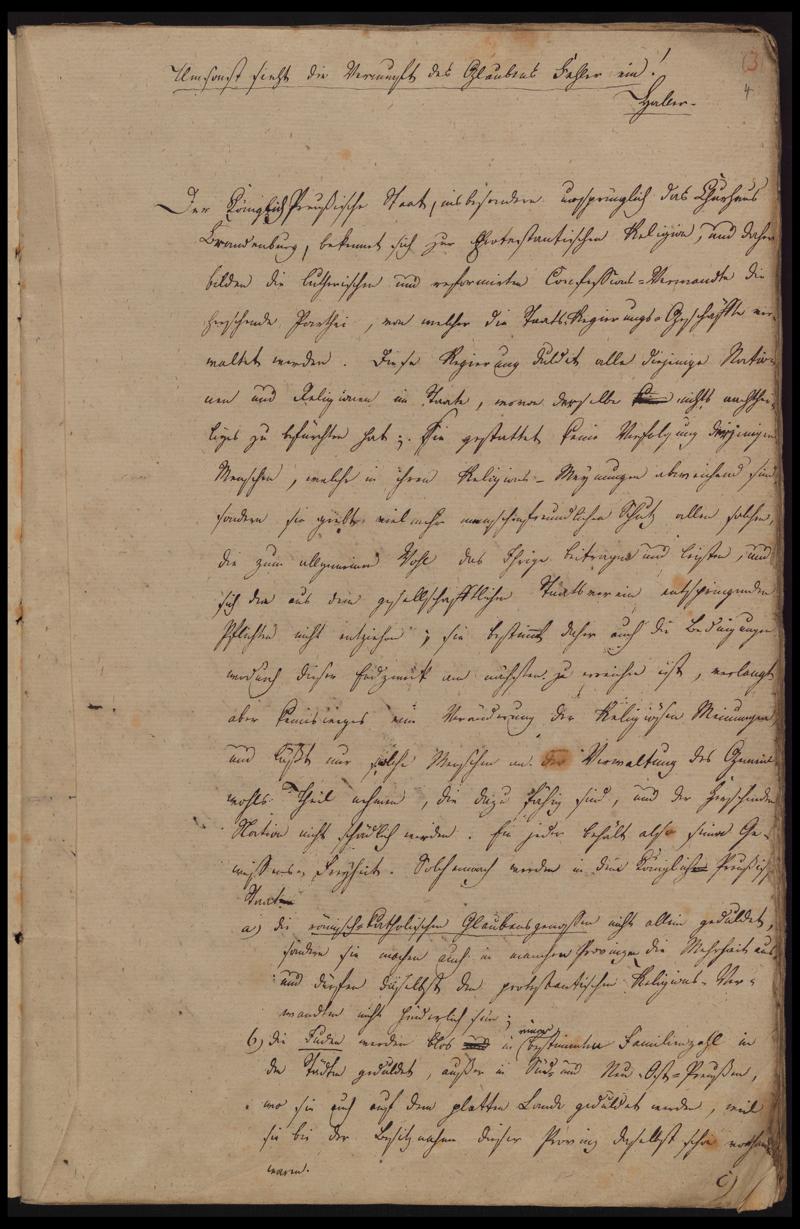 (3
4
Umsonst sieht die Vernunft des Glaubens Fehler ein!
Haller.
Der Königlich Preußische Staat, insbesondere ursprünglich das Churhaus
Brandenburg, bekennet sich zur Protestantischen Religion, und daher
bilden die lutherischen und reformirten Confessions-Verwandte die
herrschende Parthei, von welcher die Staats-Regierungs-Geschäffte ver-
waltet werden. Diese Regierung duldet alle diejenige Natio-
nen und Religionen im Staate, wovon derselbe nichts nachthei-
liges zu befürchten hat; Sie gestattet keine Verfolgung derjenigen
Menschen, welche in ihren Religions-Meynungen abweichend sind
sondern sie giebt vielmehr menschenfreundlichen Schutz allen solchen,
die zum allgemeinen Wohl das Ihrige beitragen und leisten, und
sich den aus dem gesellschafftlichen Staatsverein entspringenden
Pflichten nicht entziehen; sie bestimt daher auch die Bedingungen
wodurch dieser Endzweck am nächsten zu erreichen ist, verlangt
aber keinesweges eine Veränderung der Religiösen Meinungen
und läßt nur solche Menschen an der Verwaltung des Gemein
wohls Theil nehmen, die dazu fähig sind, und der herrschenden
Nation nicht schädlich werden. Ein jeder behält also seine Ge-
wissens-Freyheit. Solchemnach werden in dem Königlich Preußisch
Staate
a) die römisch-katholischen Glaubensgenossen nicht allein geduldet,
sondern sie machen auch in manchen Provinzen die Mehrheit aus
und dürfen daselbst den protestantischen Religions-Ver-
wandten nicht hinderlich sein;
b) die Juden werden blos in einer bestimmten Familienzahl in
den Städten geduldet, außer in Süd und Neu-Ost-Preußen,
wo sie auch auf dem platten Lande geduldet werden, weil
sie bei der Besitznahme dieser Provinz daselbst schon vorhanden
waren.
c)